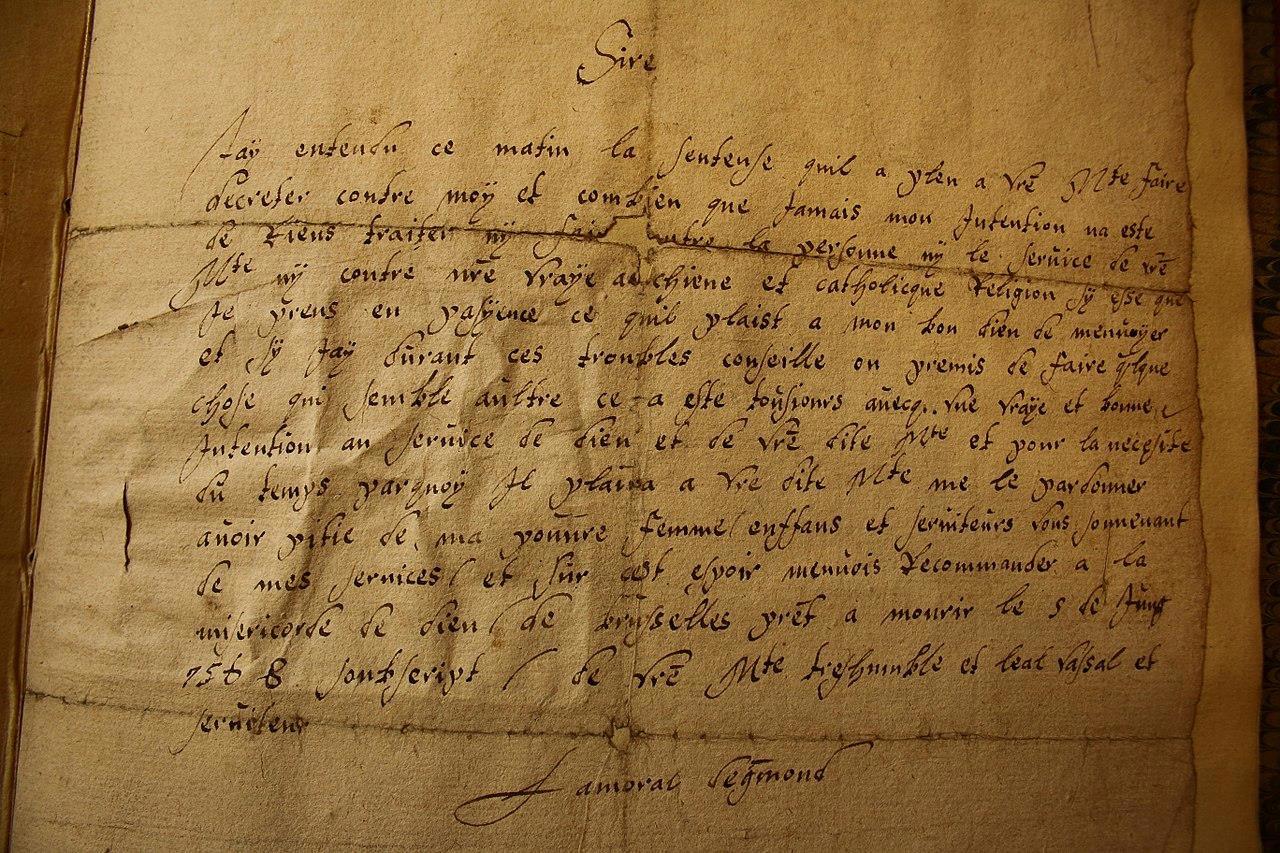 Sire
Jaÿ entendu ce matin la sentense quil a pleu a vrē Mte faire
decreter contre moÿ et combien que Jamais mon Intention na este
de Riens traiter nÿ fair contre la personne nÿ le seruice de vrē
Mte nÿ contre nrē vraÿe anchiene et catholicque Religion sÿ esse que
Je prens en pasÿence ce quil plaist a mon bon dieu de menuoÿer
et sÿ Jaÿ durant ces troubles conseille ou premis de faire qlque
chose qui semble aultre ce a este tousiours auecq. vne vraÿe et bonne
Intention au seruice de dieu et de vrē dite Mte et pour la necesite
du temps parquoÿ Il plaira a vre dite Mte me le pardonner
auoir pitie de ma pouure femme / enffans et seruiteurs vous souuenant
de mes seruices / et sur cest espoir menuois Recommander a la
misericorde de dieu / de brüsselles prēt a mourir le 5 de Jung
1568 soubscript / de vrē Mte treshumble et leal vassal et
seruiteur
Lamoral degmond